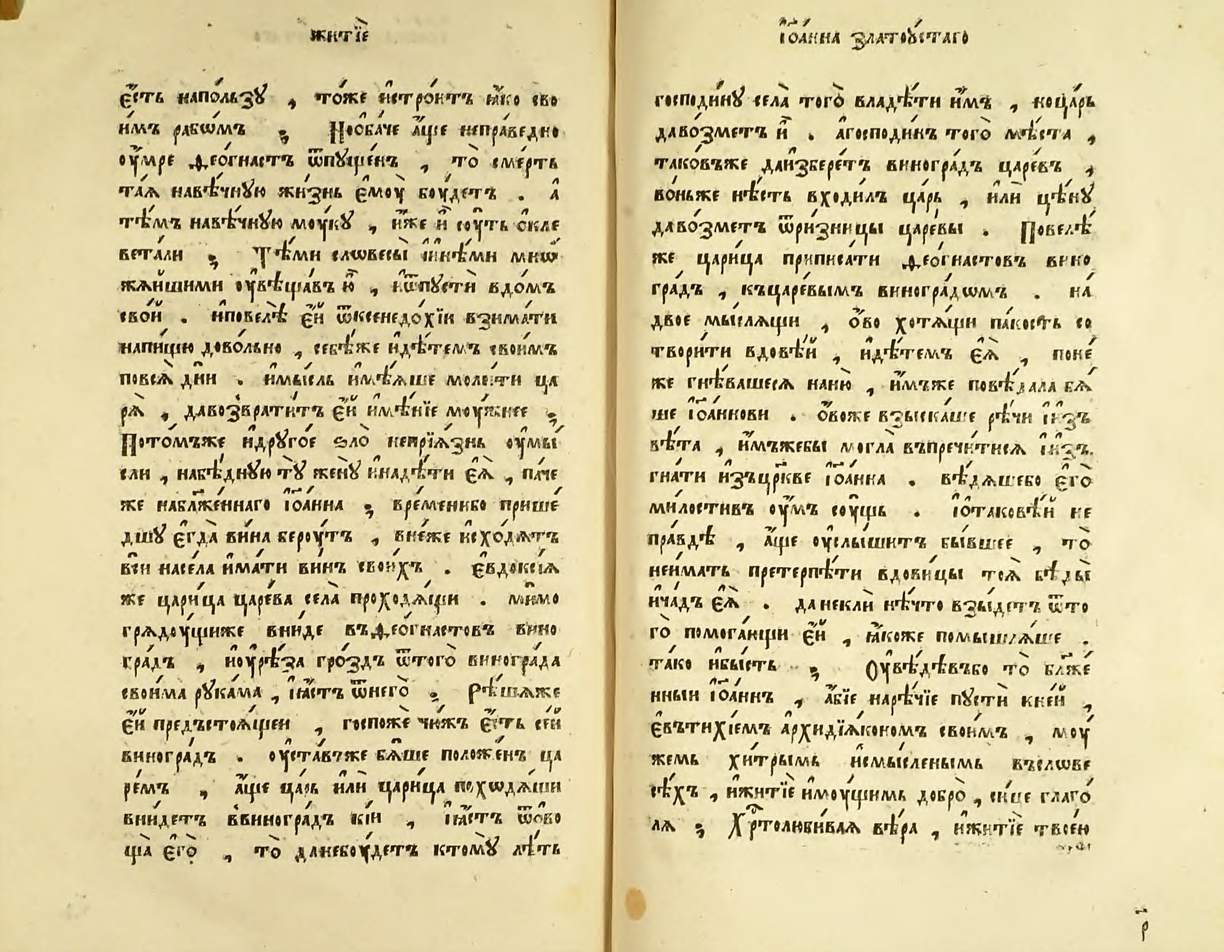 житїе
є҆́сть напо́льзꙋ , то́же и҆стро́итъ ꙗ҆́ко сво
и҆́мъ рабѡ́мъ ; Нѡба́че а҆́ще непра́ведно
оу҆́мре Ѳео́гнастъ ѿпꙋще́нъ , то̀ сме́рть
та́ѧ навѣ́чнꙋю жи́знь є҆моу̀ боу́детъ . а҆
тѣ́мъ навѣ́чнꙋю моу́кꙋ , и҆́же и҆̀ соу́ть ѻ҆кле
вета́ли ; Тѣ́ми словесы̀ и҆и҆нѣ́ми мно́
жа́ишими оу҆вѣща́въ ю҆̀ , и҆ѿпꙋстѝ вдо́мъ
сво́й . и҆повелѣ̀ є҆́й ѿксенедохі́и взима́ти
напи́щꙋ дово́льно , себѣ́же и҆дѣ́темъ свои́мъ
повсѧ̀ дни̑ . и҆мы́сль и҆мѣ́ѧше моли́ти ца
рѧ̀ , давозврати́тъ є҆́й и҆мѣ́нїе моу́жнее ;
Пото́мъже и҆дрꙋго́е ѕло̀ непрїѧ́знь оу҆мы́
сли , набѣ́днꙋю тꙋ̀ женꙋ̀ и҆надѣ́ти є҆ѧ̀ , па́че
же наблаже́ннаго І҆ѡа́нна ; вре́менибо прише́
дшꙋ є҆гда̀ вина̀ берꙋ́тъ , вне́же и҆схо́дѧтъ
всѝ насе́ла и҆ма́ти ви́нъ свои́хъ . є҆vдоксі́ѧ
же цари́ца царе́ва се́ла проходѧ́щи . ми́мо
грѧдоу́щиже вни́де въѲео́гнастовъ вино
гра́дъ , и҆оу҆рѣ́за гро́здъ ѿтого̀ виногра́да
свои́ма рꙋка́ма , і҆ꙗ҆́стъ ѿнего̀ . Рѣ́шѧже
є҆́й предъстоѧ́щеи , госпожѐ чи́жъ є҆́сть се́й
виногра́дъ . оу҆ста́въже бѧ́ше положе́нъ ца
ре́мъ , а҆́ще ца́рь и҆лѝ цари́ца похѡдѧ́щи
вни́детъ ввиногра́дъ кі́и , і҆ꙗ҆́стъ ѿово
ща̀ є҆го̀ , то̀ данебоу́детъ ктомꙋ̀ лѣ́ть
І҆ѡа́нна Златоꙋ́стаго
господи́нꙋ села̀ того̀ владѣ́ти и҆́мъ , ноца́рь
даво́зметъ и҆̀ . а҆господи́нъ того̀ мѣ́ста ,
такоⷡ҇въже даи҆збере́тъ виногра́дъ царе́въ ,
во́ньже нѣ́сть входи́лъ ца́рь , и҆лѝ цѣ́нꙋ
даво́зметъ ѿри́зницы царе́вы . Повелѣ́
же цари́ца приписа́ти Ѳео́гнастовъ вино
гра́дъ , къца́ревымъ виногра́дѡмъ . на́
двое мы́слѧщи , ѻ҆́во хотѧ́щи па́кость со
твори́ти вдовѣ́й , и҆дѣ́темъ є҆ѧ̀ , поне́
же гнѣ́вашесѧ наню̀ , и҆́мъже повѣ́дала бѧ́
ше І҆ѡа́ннови . ѻ҆́воже взыска́ше рѣ́чи і҆нз̾
вѣ́та , и҆́мъжебы могла̀ въпречи́тисѧ і҆и҆з̾
гна́ти и҆зъцр҃кве І҆ѡа́нна . вѣ́дѧшебо є҆го̀
ми́лостивъ оу҆́мъ соу́щь . і҆ѻтаковѣ́й не
пра́вдѣ , а҆́ще оу҆слы́шитъ бы́вшее , то̀
неи́мать претерпѣ́ти вдови́цы тоѧ̀ бѣды̀
и҆ча́дъ є҆ѧ̀ . да неклѝ нѣ́что взы́детъ ѿто
го̀ помога́ющи є҆́й , ꙗ҆́коже помышлѧ́ше .
та́ко и҆бы́сть ; Оу҆вѣ́дѣвъбо то̀ блаже́
нныи І҆ѡа́ннъ , а҆́бїе наре́чїе пꙋстѝ кне́й ,
є҆vти́хіемъ а҆рхидїа́кономъ свои́мъ , моу́
жемъ хи́трымъ и҆смы́сленымъ въслове
сѣ́хъ , и҆житїѐ и҆моу́щимъ добро̀ , си́це глаго́
лѧ ; Хрⷭ҇толюби́ваѧ вѣ́ра , и҆житїѐ твое́ю
р҃